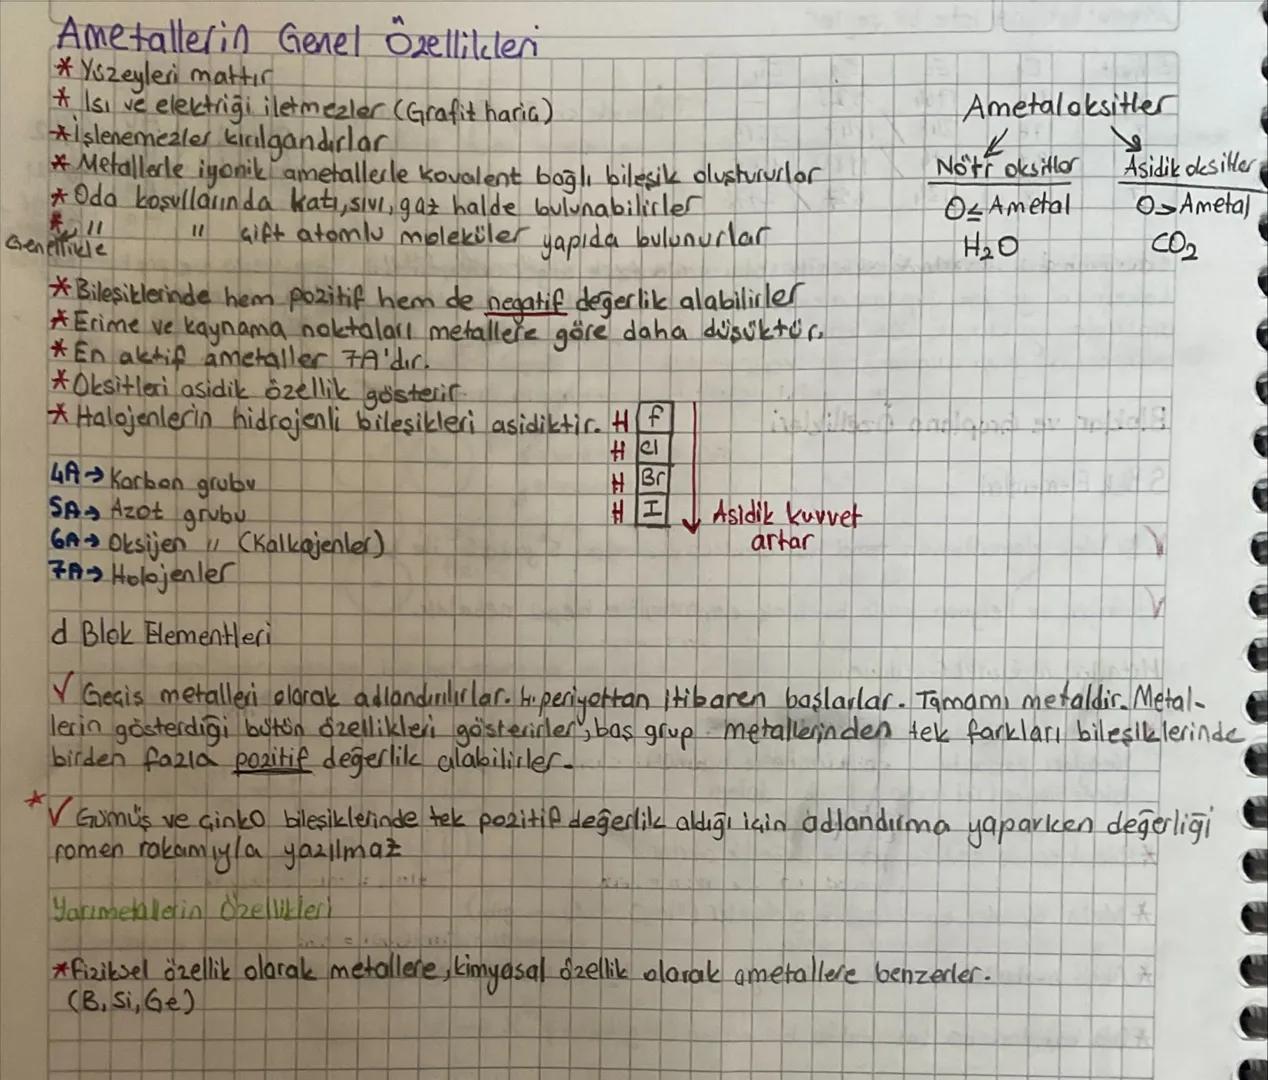 Ametallerin Genel Özellikleri
* Yüzeyleri mattır
* Isı ve elektriği iletmezler (Grafit hariç)
* İşlenemezler kırılgandırlar
* Metallerle iyonik ametallerle kovalent bağlı bileşik oluştururlar
* Oda koşullarında katı, sıvı, gaz halde bulunabilirler
* " " çift atomlu moleküler yapıda bulunurlar
Genellikle
Ametal oksitler
Nötr oksitler Asidik oksitler
O≤Ametal O>Ametal
H₂O CO₂
* Bileşiklerinde hem pozitif hem de negatif değerlik alabilirler
* Erime ve kaynama noktaları metallere göre daha düşüktür.
* En aktif ametaller 7A'dır.
* Oksitleri asidik özellik gösterir
* Halojenlerin hidrojenli bileşikleri asidiktir. H F
H Cl
H Br
H I
Asidik kuvvet
artar
4A → Karbon grubu
5A → Azot grubu
6A → Oksijen " (Kalkojenler)
7A → Halojenler
d Blok Elementleri
√ Geçiş metalleri olarak adlandırılırlar. 4. periyottan itibaren başlarlar. Tamamı metaldir. Metal-
lerin gösterdiği bütün özellikleri gösterirler, baş grup metallerinden tek farkları bileşiklerinde
birden fazla pozitif değerlik alabilirler.
* √ Gümüş ve çinko bileşiklerinde tek pozitif değerlik aldığı için adlandırma yaparken değerliği
romen rakamıyla yazılmaz
Yarımetallerin Özellikleri
* Fiziksel özellik olarak metallere, kimyasal özellik olarak ametallere benzerler.
(B, Si, Ge)